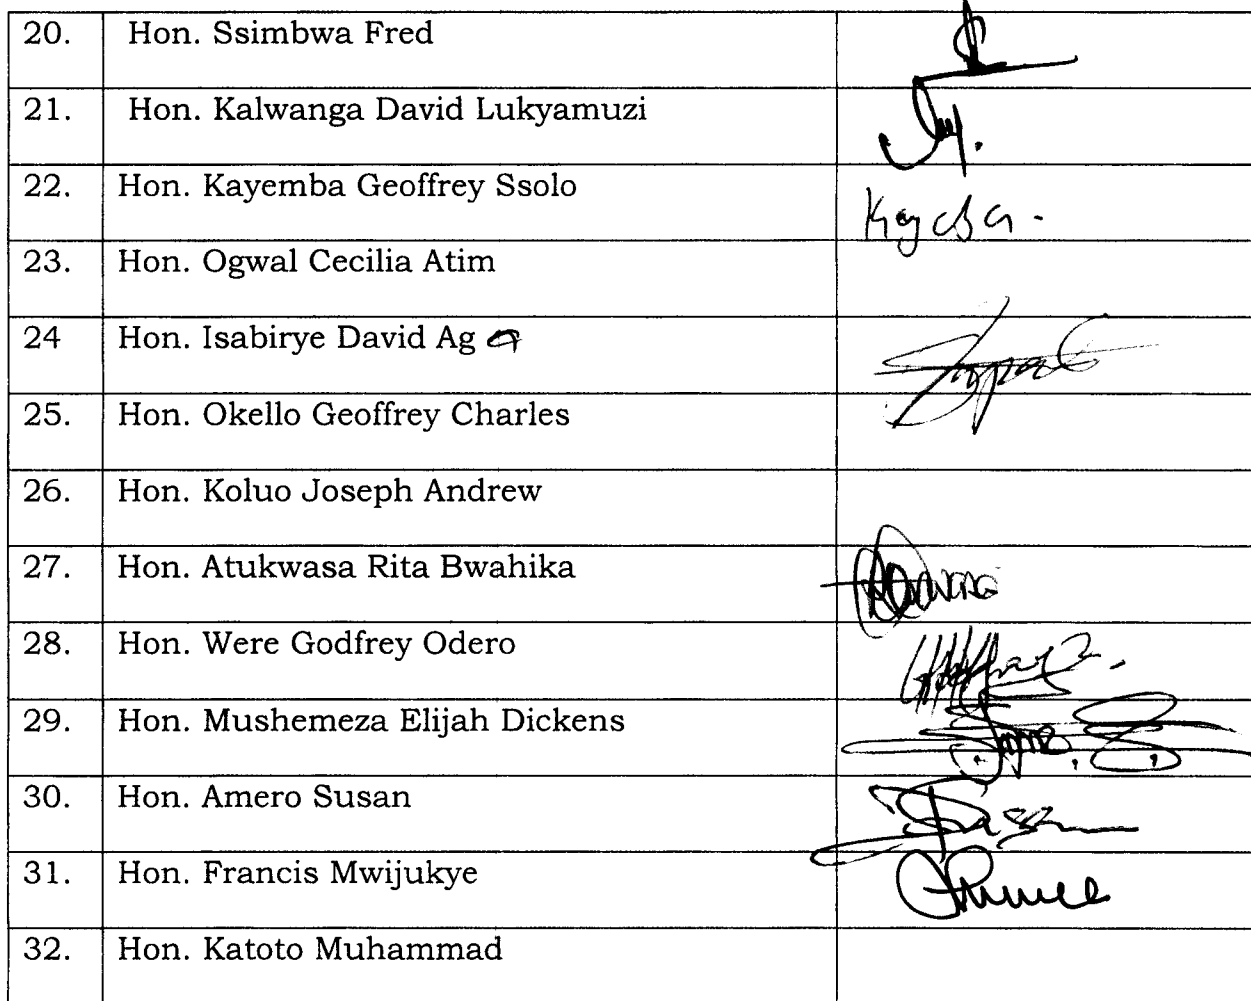 20. Hon. Ssimbwa Fred
21. Hon. Kalwanga David Lukyamuzi
22. Hon. Kayemba Geoffrey Ssolo
23. Hon. Ogwal Cecilia Atim
24 Hon. Isabirye David Ag a
25. Hon. Okello Geoffrey Charles
26. Hon. Koluo Joseph Andrew
27. Hon. Atukwasa Rita Bwahika
28. Hon. Were Godfrey Odero
29. Hon. Mushemeza Elijah Dickens
30. Hon. Amero Susan
31. Hon. Francis Mwijukye
32. Hon. Katoto Muhammad